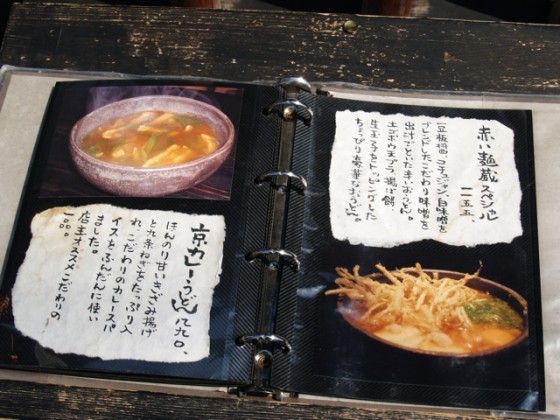 赤い麺蔵スペシャル
一二五五、
豆板醤 コチュジャン 白味噌を
ブレンドしたこだわり味噌を
出汁でといた辛いおうどん。
土ゴボウ天プラ、揚げ餅、
生玉子をトッピングした
ちょっぴり豪華なおうどん。
京カレーうどん 八九〇、
ほんのり甘いきざみ揚げ
と九条ねぎをたっぷり入
れ、こだわりのカレースパ
イスをふんだんに使い
ました。
店主オススメこだわりの